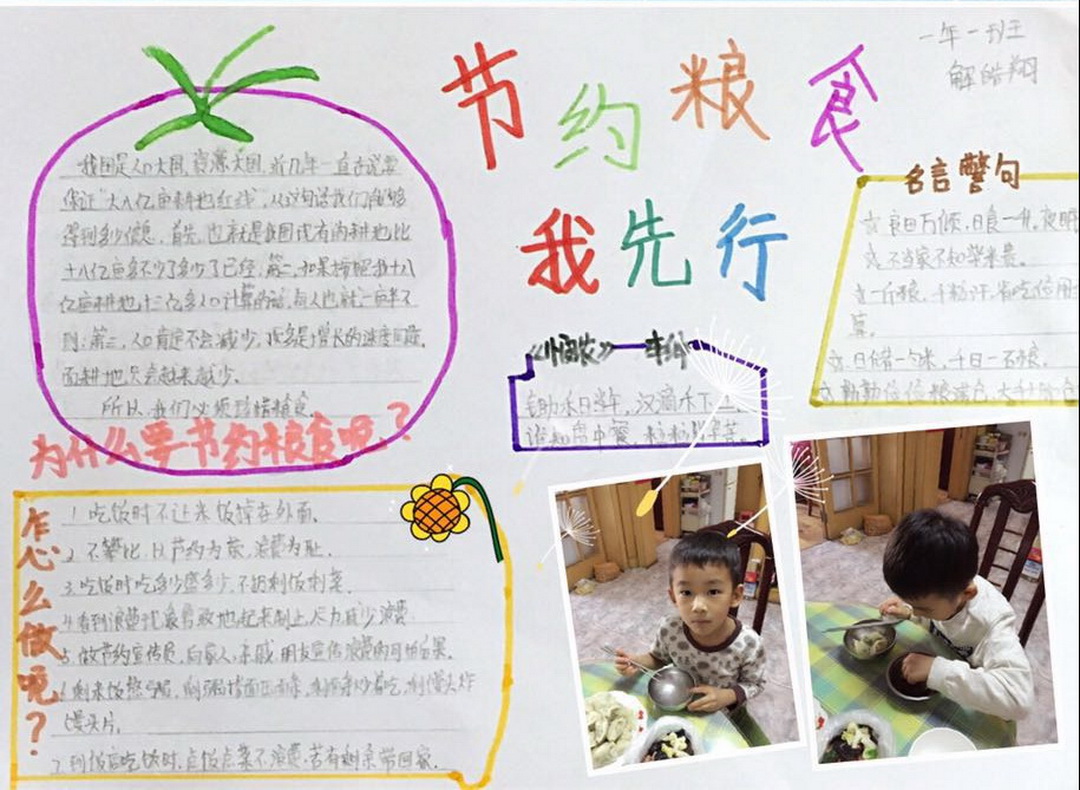 节约粮食
我先行
一年一班
解皓翔
我国是人口大国,资源大国,近几年一直在说要
保证“十八亿亩耕地红线”,从这句话我们能够
得到多少信息,首先,也就是我国或有的耕地比
十八亿亩多不少了多少了已经,第二,如果按照我十八
亿亩耕地,十三亿多人口计算的话,每人也就一亩半不
到;第三,人口肯定不会减少,顶多是增长的速度问题,
而耕地只会越来越少。
所以,我们必须珍惜粮食
为什么要节约粮食呢?
名言警句
☆良田万倾,日食一升,夜眠
☆不当家不知柴米贵。
☆一斤粮,千粒汗,省吃俭用
☆日储一勺米,千日一石粮。
☆勤勤俭俭粮满仓,大手
《悯农》 李绅
锄禾日当午,汗滴禾下
谁知盘中餐,粒粒皆辛苦。
怎么做呢?
1.吃饭时不让米饭掉在外面。
2.不攀比,以节约为荣,浪费为耻。
3.吃饭时吃多少盛多少,不扔剩饭剩菜。
4.看到浪费现象勇敢地起来制止,尽力减少浪费
5.做节约宣传员,向家人,亲戚,朋友宣传浪费的可怕后果。
6.剩米饭 剩 吃,剩馒头炸
馒头片。
7.到饭店吃饭时,点饭点菜不浪费,若有剩余带回家。